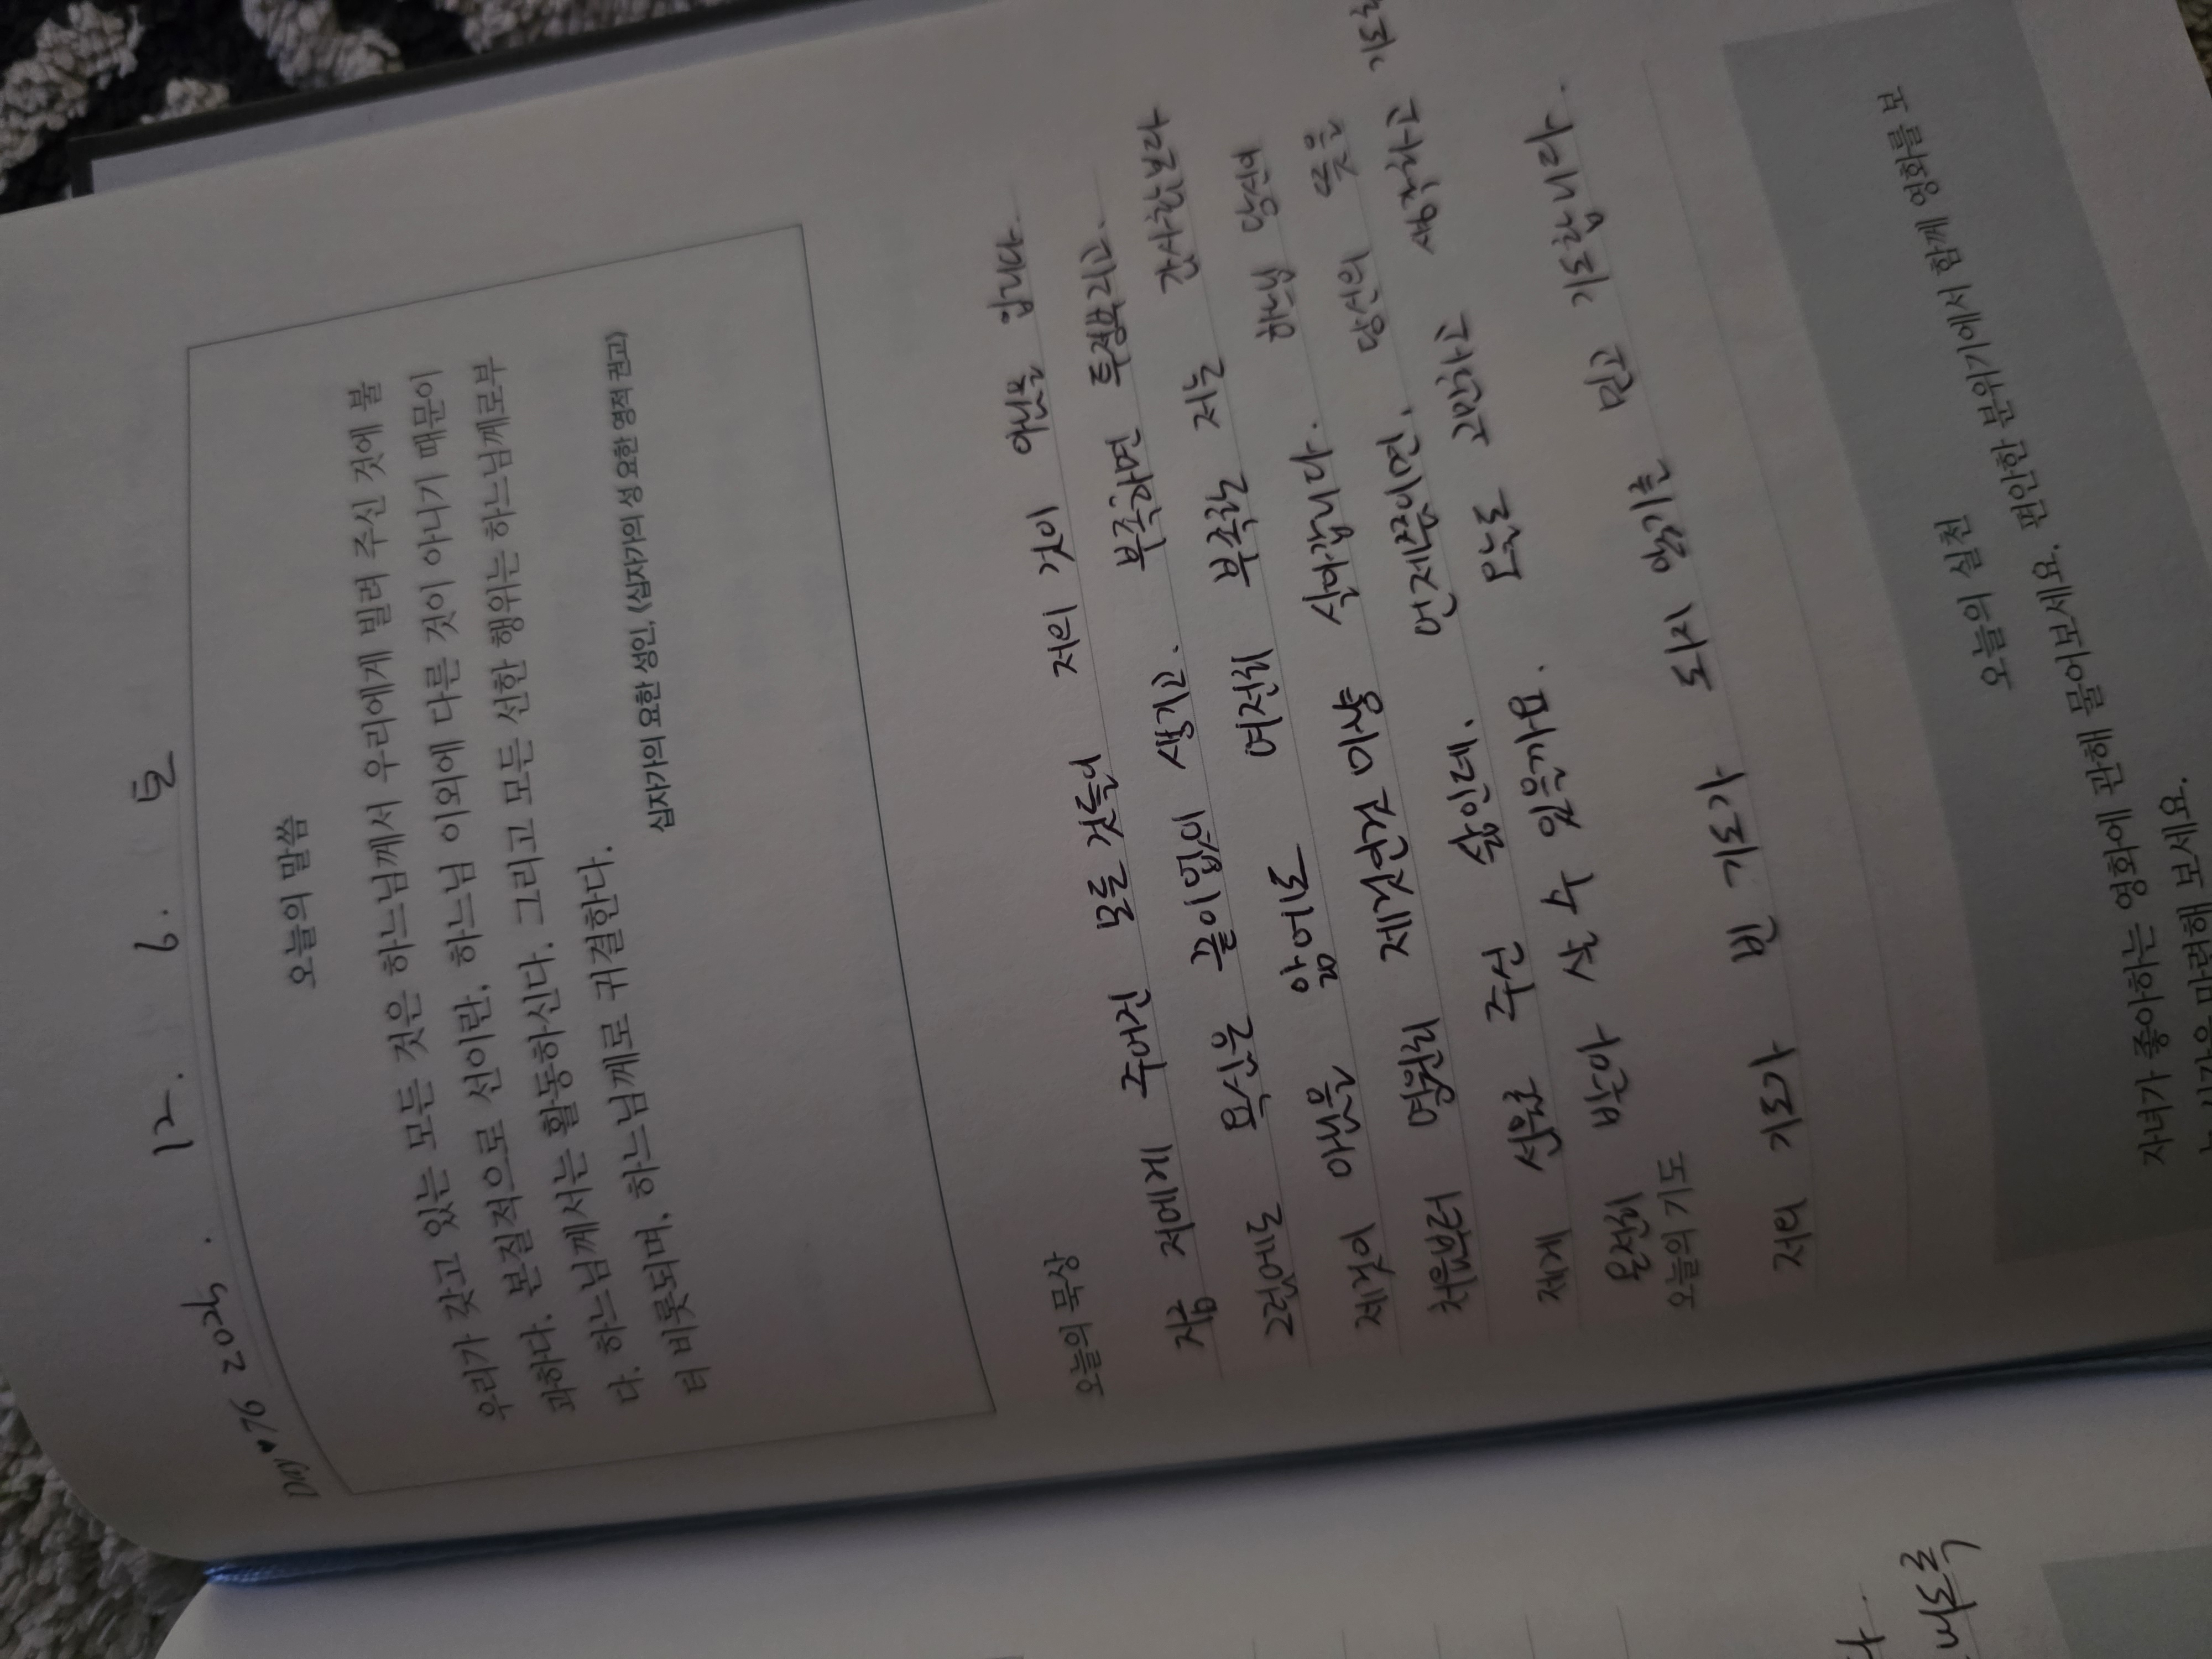 Day 76 2025. 12. 6. 토
오늘의 말씀
우리가 갖고 있는 모든 것은 하느님께서 우리에게 빌려 주신 것에 불
과하다. 본질적으로 선이란, 하느님 이외에 다른 것이 아니기 때문이
다. 하느님께서는 활동하신다. 그리고 모든 선한 행위는 하느님께로부
터 비롯되며, 하느님께로 귀결한다.
십자가의 요한 성인, 〈십자가의 성 요한 영적 권고〉
오늘의 묵상
지금 저에게 주어진 모든 것들이 저의 것이 아님을 압니다.
그럼에도 욕심은 끝이없이 생기고. 부족하면 투정부리고.
제것이 아님을 앎에도 여전히 부족한 저는 감사함보다
처음부터 영원히 제것인것 마냥 살아갑니다. 하느님 당신이
제게 선물로 주신 삶인데. 언제쯤이면. 당신의 뜻을
온전히 받아 살 수 있을까요. 오늘도 고민하고 생각하고
오늘의 기도
저의 기도가 빈 기도가 되지 않기를 믿고 기도합니다.
오늘의 실천
자녀가 좋아하는 영화에 관해 물어보세요. 편안한 분위기에서 함께 영화를 보
는 시간을 마련해 보세요.